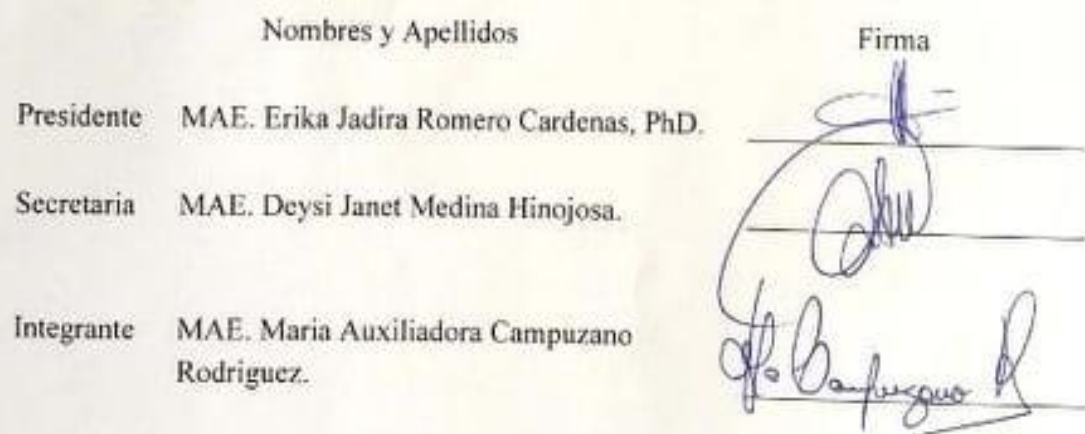 Nombres y Apellidos Firma
Presidente MAE. Erika Jadira Romero Cardenas, PhD.
Secretaria MAE. Deysi Janet Medina Hinojosa.
Integrante MAE. Maria Auxiliadora Campuzano
Rodriguez.
Campuzano R